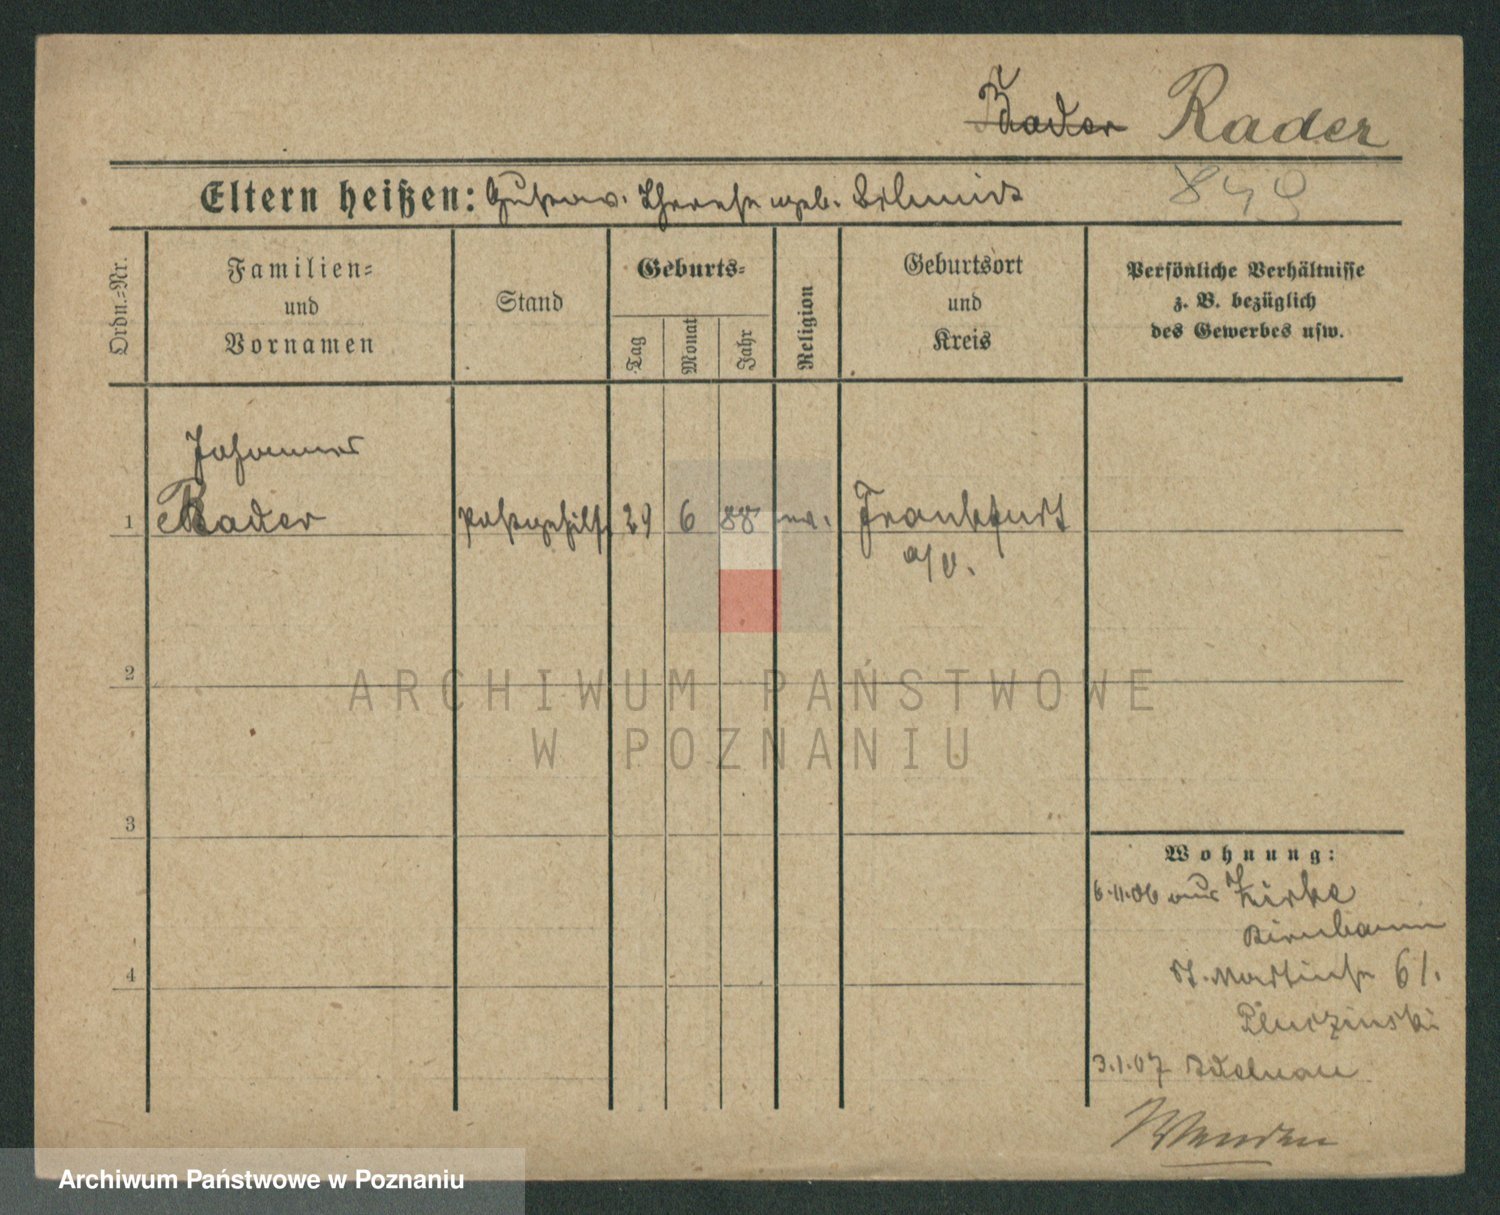 Bader Rader
Eltern heißen: Gustav. Therese geb. Schmidt
849
Ordn.=Nr.
Familien=
und
Vornamen
Stand
Geburts=
Tag
Monat
Jahr
Religion
Geburtsort
und
Kreis
Persönliche Verhältnisse
z. B. bezüglich
des Gewerbes usw.
Johannes
1 Rader Postgehilfe 29 6 88 ev. Frankfurt
a/O.
2
ARCHIWUM PAŃSTWOWE
W POZNANIU
3
Wohnung:
6.11.06 aus Zirke
Birnbaum
St. Martinstr 61.
4
3.1.07 Adelnau
Wenden
Archiwum Państwowe w Poznaniu